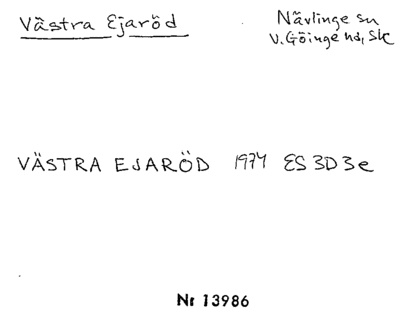 Västra Ejaröd
Nävlinge sn
V. Göinge hd, Sk
VÄSTRA EJARÖD 1974 ES 3D3e
Nr 13986